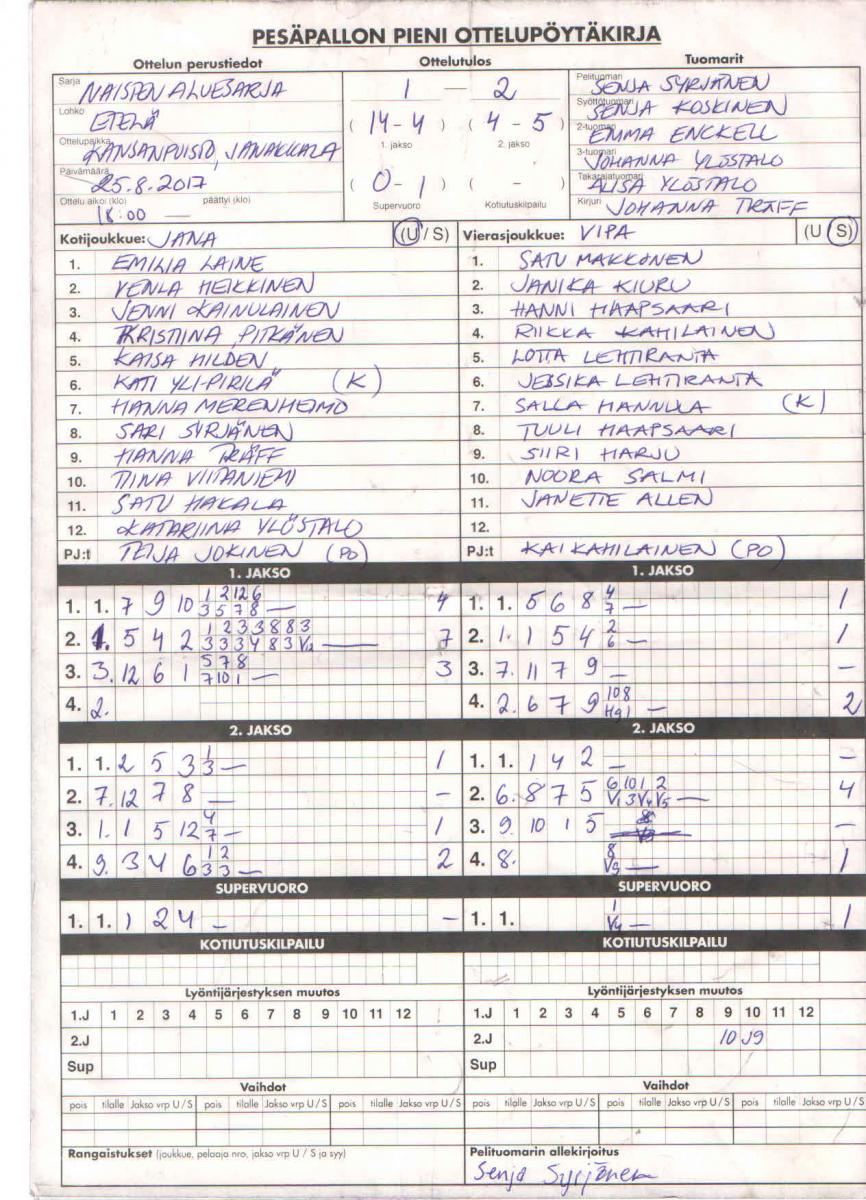 PESÄPALLON PIENI OTTELUPÖYTÄKIRJA
Ottelun perustiedot Ottelutulos Tuomarit
Sarja NAISTEN ALUESARJA 1 — 2 Pelituomari SENJA SYRJÄNEN
Lohko ETELÄ (14-4) (4-5) Syöttötuomari SENJA KOSKINEN
1. jakso 2. jakso 2-tuomari EMMA ENCKELL
Ottelupaikka KANSANPUISTO, JANAKKALA 3-tuomari JOHANNA YLÖSTALO
Päivämäärä 25.8.2017 (0-1) ( - ) Takarajatuomari ALISA YLÖSTALO
Ottelu alkoi (klo) päättyi (klo) Supervuoro Kotiutuskilpailu Kirjuri JOHANNA TRÄFF
18:00 —
Kotijoukkue: JANA (U / S) Vierasjoukkue: VIPA (U / S)
1. EMILIA LAINE 1. SATU MAKKONEN
2. VENLA HEIKKINEN 2. JANIKA KIURU
3. JENNI KAINULAINEN 3. HANNI HAAPSAARI
4. KRISTIINA PITKÄNEN 4. RIIKKA KAHILAINEN
5. KAISA HILDEN 5. LOTTA LEHTIRANTA
6. KATI YLI-PIRILÄ (K) 6. JESSIKA LEHTIRANTA
7. HANNA MERENHEIMO 7. SALLA HANNULA (K)
8. SARI SYRJÄNEN 8. TUULI HAAPSAARI
9. HANNA TRÄFF 9. SIIRI HARJU
10. TIINA VIITANIEMI 10. NOORA SALMI
11. SATU HAKALA 11. JANETTE ALLEN
12. KATARIINA YLÖSTALO 12.
PJ:t TEIJA JOKINEN (PO) PJ:t KAI KAHILAINEN (PO)
1. JAKSO 1. JAKSO
1. 1. 7 9 10 1 2 12 6 / 3 5 7 8 — 4 1. 1. 5 6 8 4 / 7 — 1
2. 1. 5 4 2 1 2 3 3 8 8 3 / 3 3 3 4 8 3 V12 — 7 2. 1. 1 5 4 2 / 6 — 1
3. 3. 12 6 1 5 7 8 / 7 10 1 — 3 3. 7. 11 7 9 — -
4. 2. 4. 2. 6 7 9 10 8 / H9 1 — 2
2. JAKSO 2. JAKSO
1. 1. 2 5 3 1 / 3 — 1 1. 1. 1 4 2 — -
2. 7. 12 7 8 — - 2. 6. 8 7 5 6 10 1 2 / V1 3 V4 V5 — 4
3. 1. 1 5 12 4 / 7 — 1 3. 9. 10 1 5 -
4. 9. 3 4 6 1 2 / 3 3 — 2 4. 8. 8 / V9 — 1
SUPERVUORO SUPERVUORO
1. 1. 1 2 4 — - 1. 1. 1 / V4 — 1
KOTIUTUSKILPAILU KOTIUTUSKILPAILU
Lyöntijärjestyksen muutos Lyöntijärjestyksen muutos
1.J 1 2 3 4 5 6 7 8 9 10 11 12 1.J 1 2 3 4 5 6 7 8 9 10 11 12
2.J 2.J 10 J9
Sup Sup
Vaihdot Vaihdot
pois tilalle Jakso vrp U / S pois tilalle Jakso vrp U / S pois tilalle Jakso vrp U / S pois tilalle Jakso vrp U / S pois tilalle Jakso vrp U / S pois tilalle Jakso vrp U / S
Rangaistukset (joukkue, pelaaja nro, jakso vrp U / S ja syy) Pelituomarin allekirjoitus
Senja Syrjänen